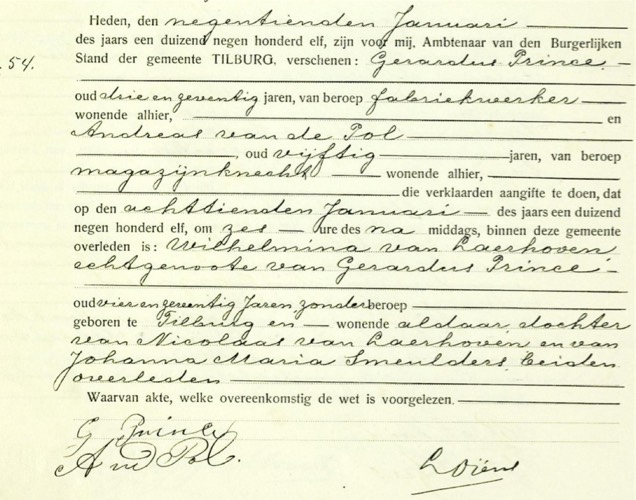 Heden, den negentienden Januari
des jaars een duizend negen honderd elf, zijn voor mij, Ambtenaar van den Burgerlijken
54.
Stand der gemeente TILBURG, verschenen: Gerardus Prince
oud drie en zeventig jaren, van beroep fabriekwerker
wonende alhier, en
Andreas van de Pol
, oud vijftig jaren, van beroep
magazijnknecht wonende alhier,
die verklaarden aangifte te doen, dat
op den achttienden Januari des jaars een duizend
negen honderd elf, om zes ure des na middags, binnen deze gemeente
overleden is: Wilhelmina van Laerhoven,
echtgenoote van Gerardus Prince
oud vier en zeventig Jaren, zonder beroep
geboren te Tilburg en wonende aldaar, dochter
van Nicolaas van Laerhoven en van
Johanna Maria Smeulders, beiden
overleden
Waarvan akte, welke overeenkomstig de wet is voorgelezen.
G Prince
A vd Pol.